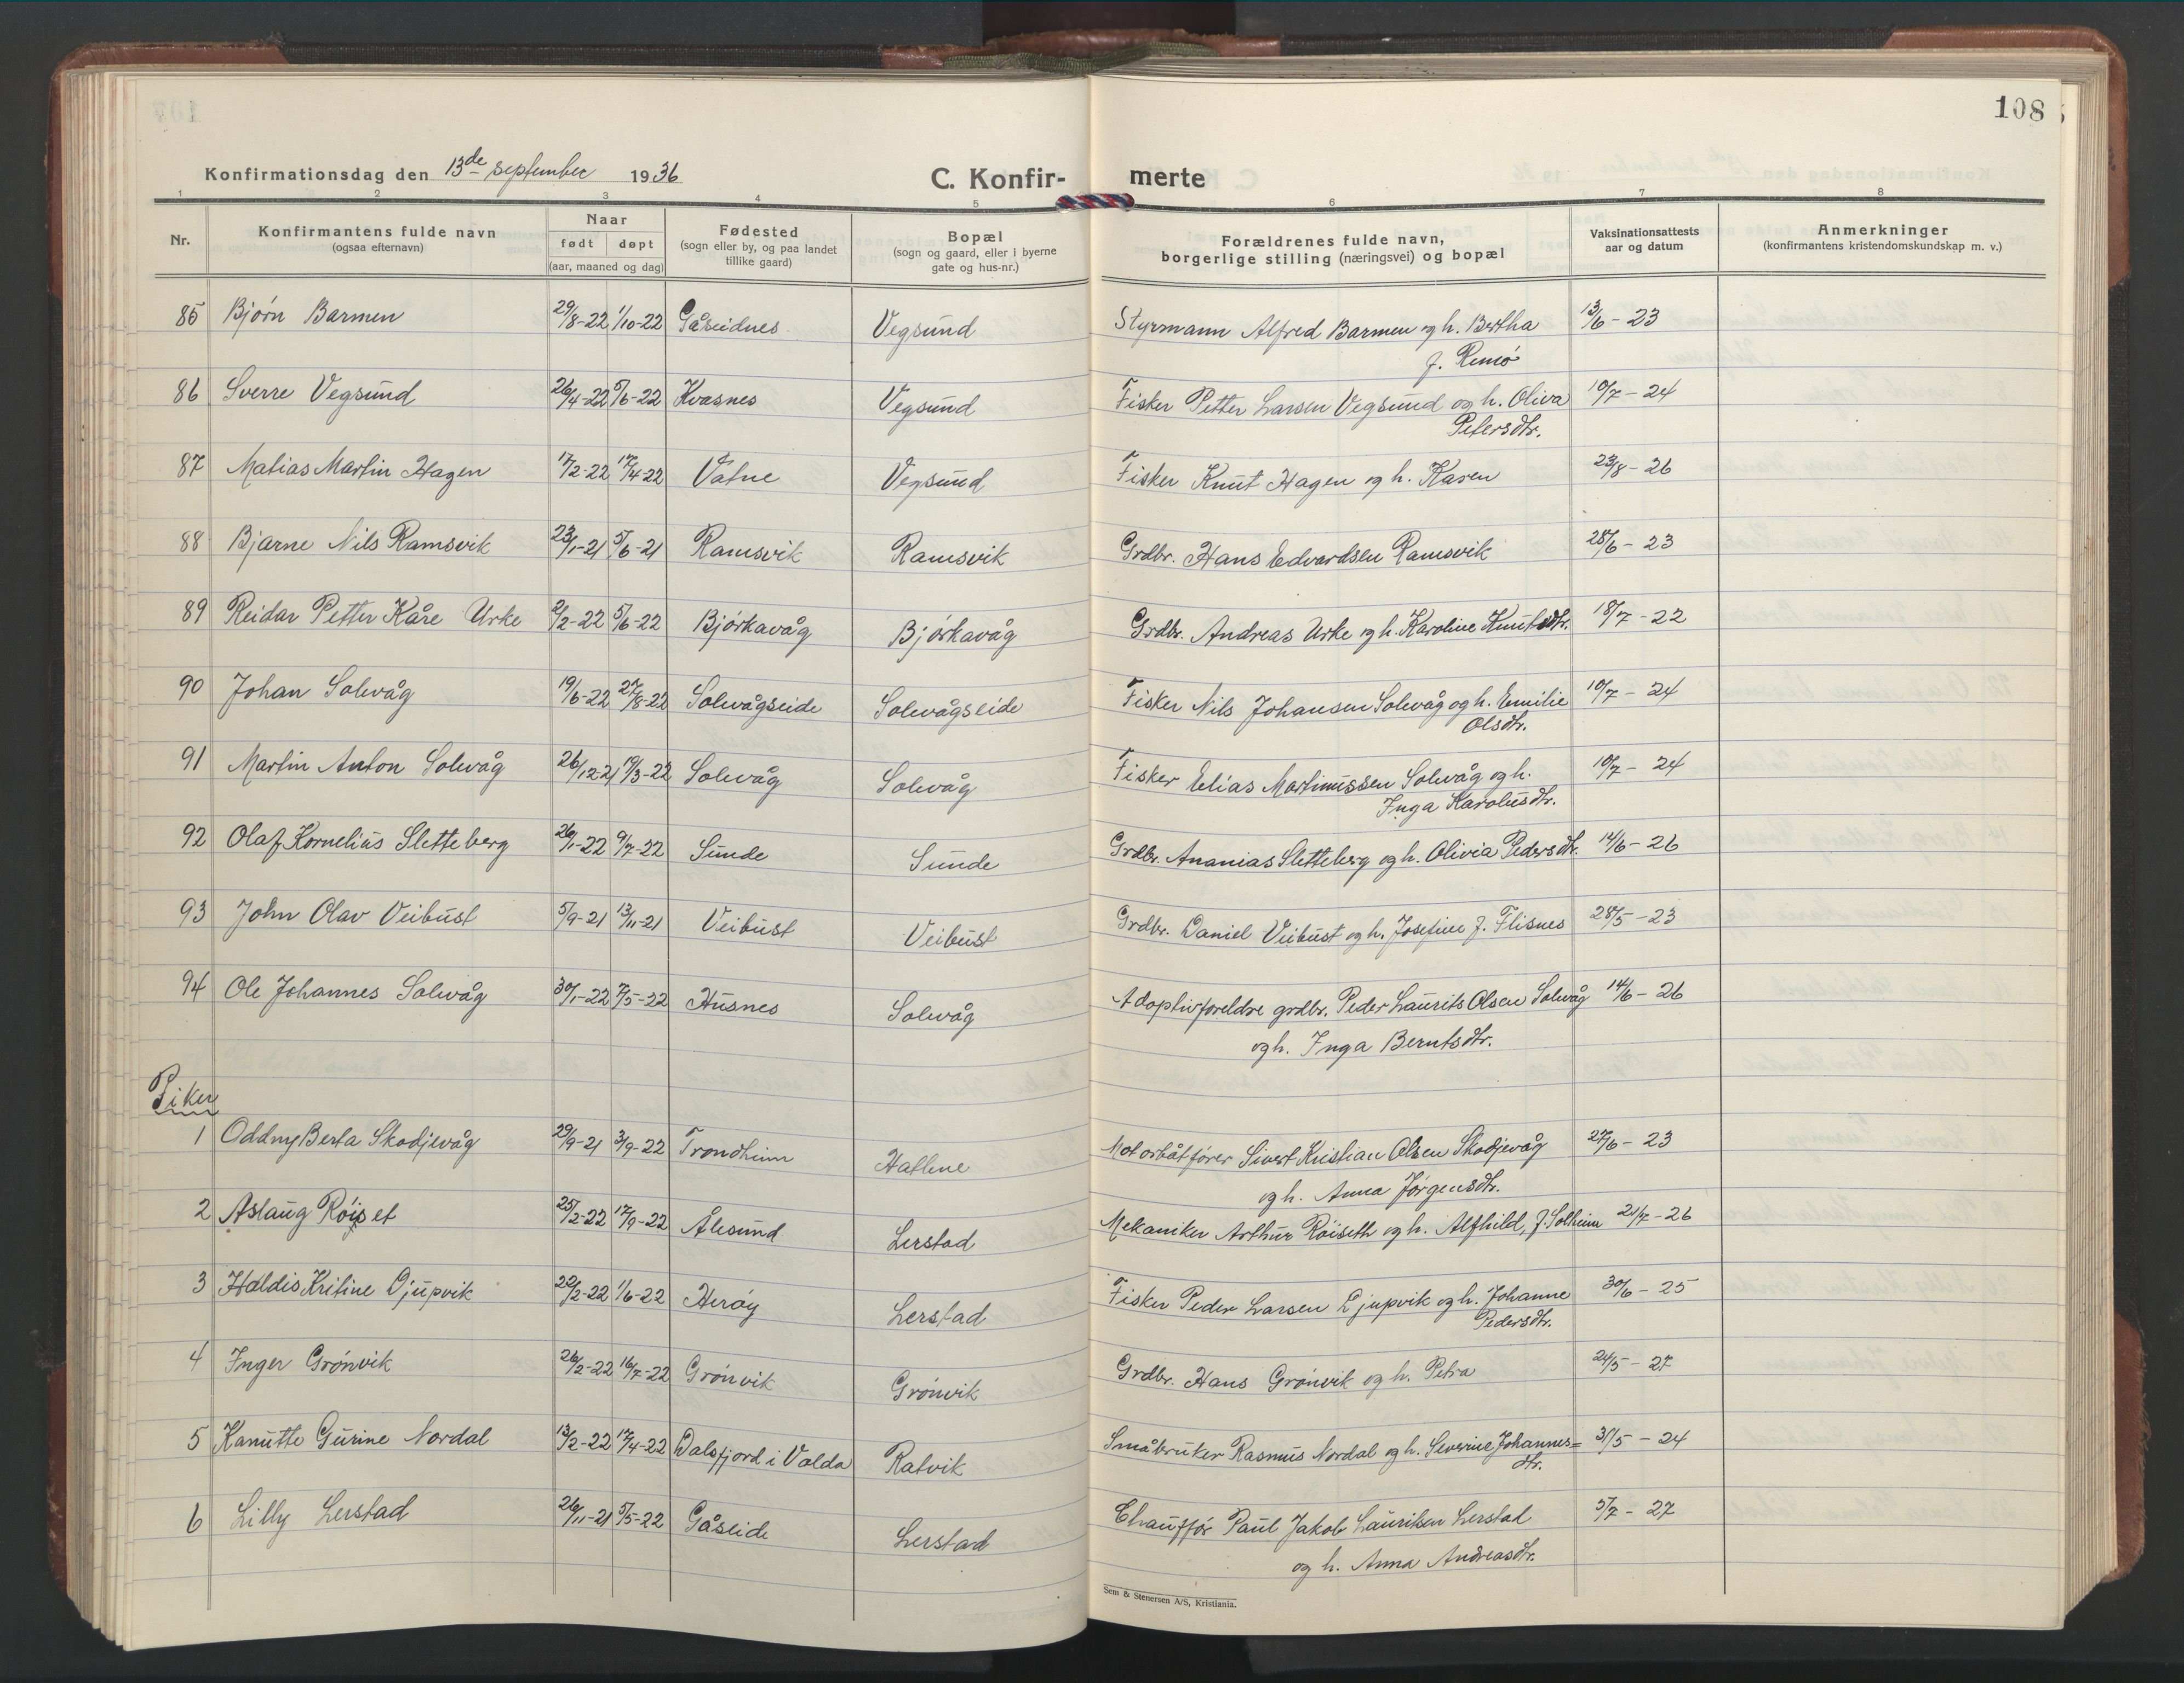 108
Konfirmationsdag den 13de september 1936
C. Konfir- merte
1 2 3 4 5 6 7 8
Nr. | Konfirmantens fulde navn (ogsaa efternavn) | Naar født døpt (aar, maaned og dag) | Fødested (sogn eller by, og paa landet tillike gaard) | Bopæl (sogn og gaard, eller i byerne gate og hus-nr.) | Forældrenes fulde navn, borgerlige stilling (næringsvei) og bopæl | Vaksinationsattests aar og datum | Anmerkninger (konfirmantens kristendomskundskap m. v.)
85 Bjørn Barmen 29/8-22 1/10-22 Gåseidnes Vegsund Styrmann Alfred Barmen og h. Bertha 13/6-23
f. Remø
86 Sverre Vegsund 26/4-22 5/6-22 Kvasnes Vegsund Fisker Petter Larsen Vegsund og h. Oliva 10/7-24
Petersdtr.
87 Matias Martin Hagen 17/2-22 17/4-22 Vatne Vegsund Fisker Knut Hagen og h. Karen 23/8-26
88 Bjarne Nils Ramsvik 23/1-21 5/6-21 Ramsvik Ramsvik Grdbr. Hans Edvardsen Ramsvik 28/6-23
89 Reidar Petter Kåre Urke 2/2-22 5/6-22 Bjørkavåg Bjørkavåg Grdbr. Andreas Urke og h. Karoline Knutsdtr. 18/7-22
90 Johan Solevåg 19/6-22 27/8-22 Solevågseide Solevågseide Fisker Nils Johansen Solevåg og h. Emilie 10/7-24
Olsdtr.
91 Martin Anton Solevåg 26/12-21 19/3-22 Solevåg Solevåg Fisker Elias Martinussen Solevåg og h. 10/7-24
Inga Karolusdtr.
92 Olaf Kornelius Sletteberg 26/1-22 9/7-22 Sunde Sunde Grdbr. Ananias Sletteberg og h. Olivia Pedersdtr. 14/6-26
93 John Olav Veibust 5/9-21 13/11-21 Veibust Veibust Grdbr. Daniel Veibust og h. Josefine f. Flisnes 28/5-23
94 Ole Johannes Solevåg 30/1-22 7/5-22 Husnes Solevåg Adoptivforeldre grdbr. Peder Laurits Olsen Solevåg 14/6-26
og h. Inga Berntsdtr.
Piker
1 Oddny Berta Skodjevåg 29/9-21 3/9-22 Trondheim Hatlene Motorbåtfører Sivert Kristian Olsen Skodjevåg 27/6-23
og h. Anna Jørgensdtr.
2 Aslaug Röiset 25/2-22 17/9-22 Ålesund Lerstad Mekaniker Arthur Röiseth og h. Alfhild, f. Solheim 21/7-26
3 Haldis Kritine Djupvik 22/2-22 1/6-22 Herøy Lerstad Fisker Peder Larsen Djupvik og h. Johanne 30/6-25
Pedersdtr.
4 Inger Grønvik 26/2-22 16/7-22 Grønvik Grønvik Grdbr. Hans Grønvik og h. Petra 24/5-27
5 Kanutte Gurine Nordal 13/2-22 17/4-22 Dalsfjord i Volda Ratvik Småbruker Rasmus Nordal og h. Severine Johannes= 31/5-24
dtr.
6 Lilly Lerstad 26/11-21 5/5-22 Gåseide Lerstad Chauffør Paul Jakob Lauritsen Lerstad 5/7-27
og h. Anna Andreasdtr.
Sem & Stenersen A/S, Kristiania.